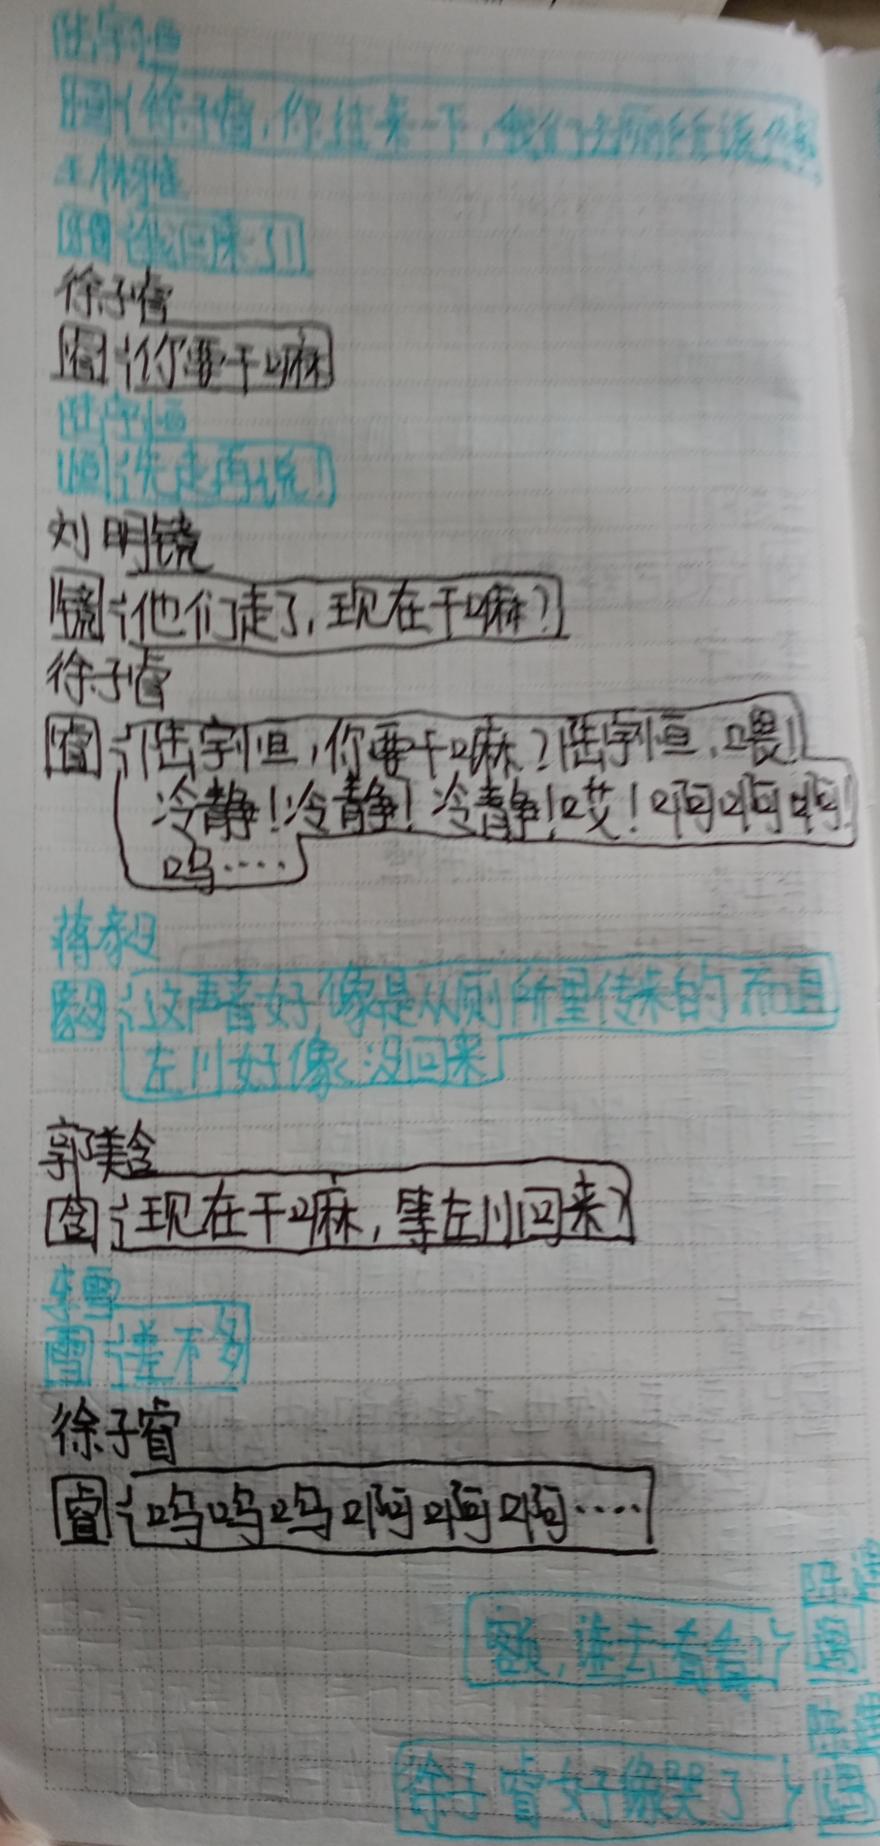 陆宇恒
恒 徐子睿,你过来一下,我们去厕所谈个
王林雅
雅 他回来了!
徐子睿
睿 你要干嘛
陆宇恒
恒 先走再说!
刘明镜
镜 他们走了,现在干嘛?
徐子睿
睿 陆宇恒,你要干嘛?陆宇恒,喂!
冷静!冷静!冷静!哎!啊啊啊!
呜····
蒋毅
毅 这声音好像是从厕所里传来的而且
左川好像没回来
郭美含
含 现在干嘛,等左川回来?
雪
雪 差不多
徐子睿
睿 呜呜呜啊啊啊····
陈
额,谁去看看
陈
徐子睿好像哭了